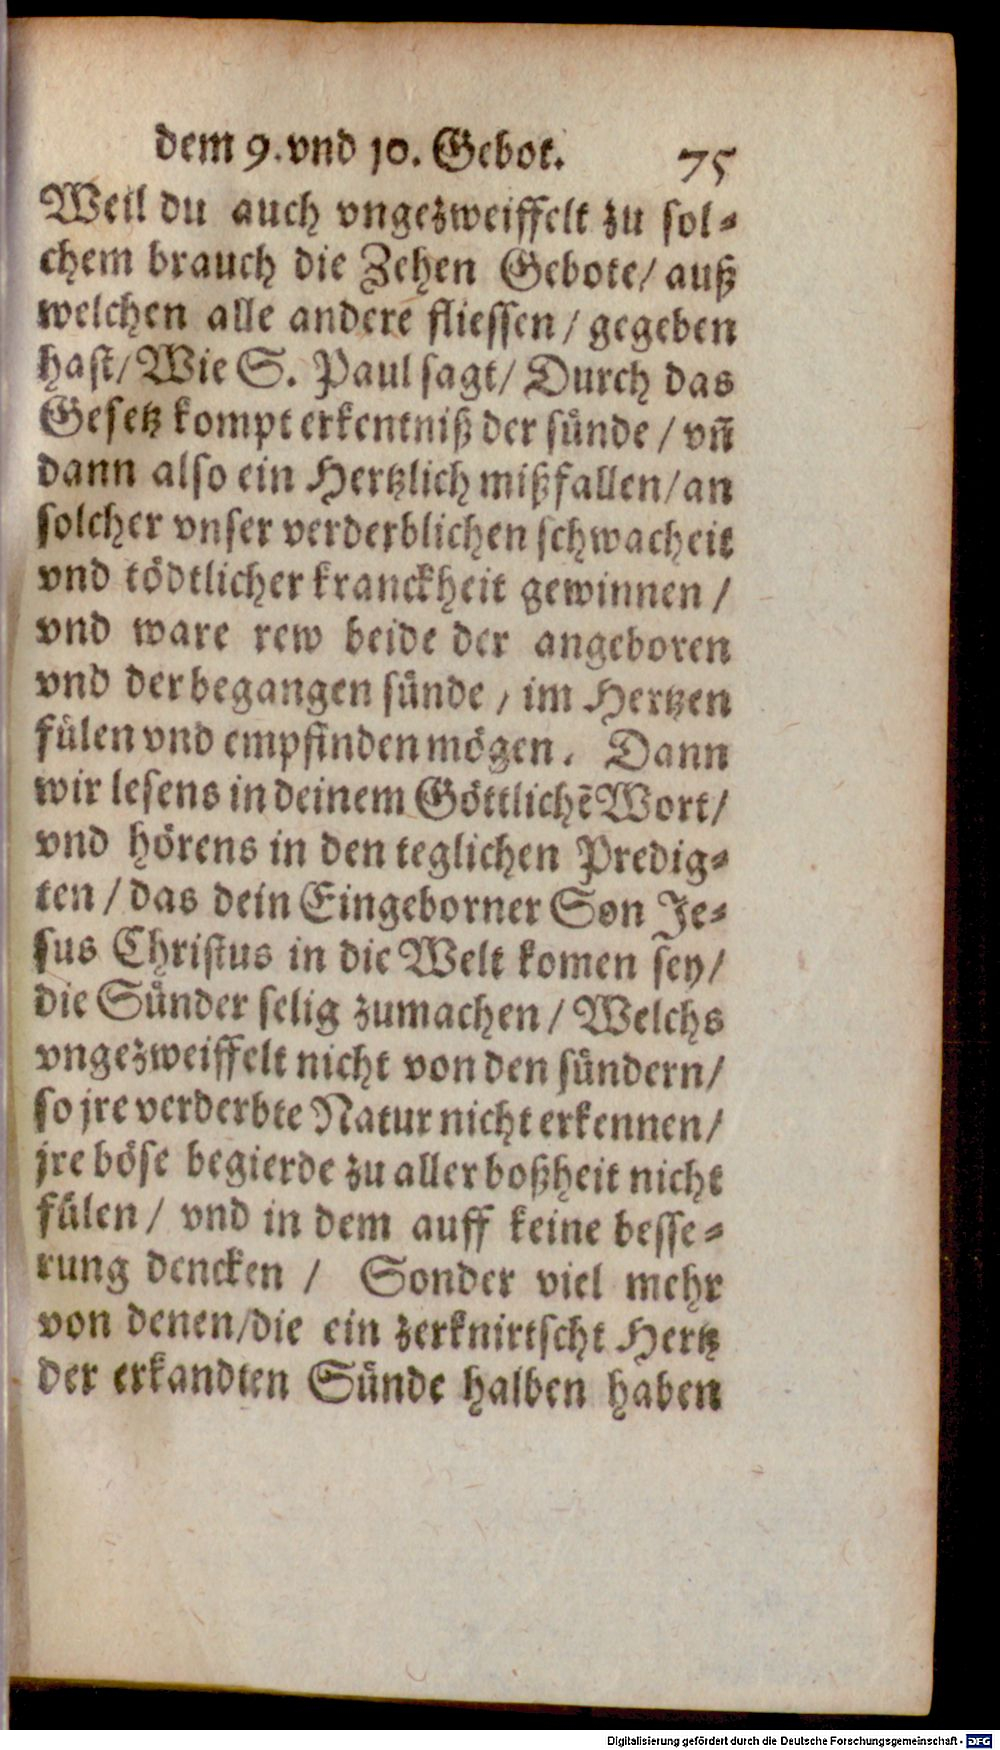 dem 9. vnd 10. Gebot. 75
Weil du auch vngezweiffelt zu sol⸗
chem brauch die Zehen Gebote/ auß
welchen alle andere fliessen / gegeben
hast/ Wie S. Paul sagt/ Durch das
Gesetz kompt erkentniß der sünde / vn̄
dann also ein Hertzlich mißfallen/ an
solcher vnser verderblichen schwacheit
vnd tödtlicher kranckheit gewinnen /
vnd ware rew beide der angeboren
vnd der begangen sünde / im Hertzen
fülen vnd empfinden mögen. Dann
wir lesens in deinem Göttlichē Wort/
vnd hörens in den teglichen Predig⸗
ten / das dein Eingeborner Son Je⸗
sus Christus in die Welt komen sey/
die Sünder selig zumachen / Welchs
vngezweiffelt nicht von den sündern/
so jre verderbte Natur nicht erkennen/
jre böse begierde zu aller boßheit nicht
fülen / vnd in dem auff keine besse⸗
rung dencken / Sonder viel mehr
von denen/die ein zerknirtscht Hertz
der erkandten Sünde halben haben
Digitalisierung gefördert durch die Deutsche Forschungsgemeinschaft - DFG